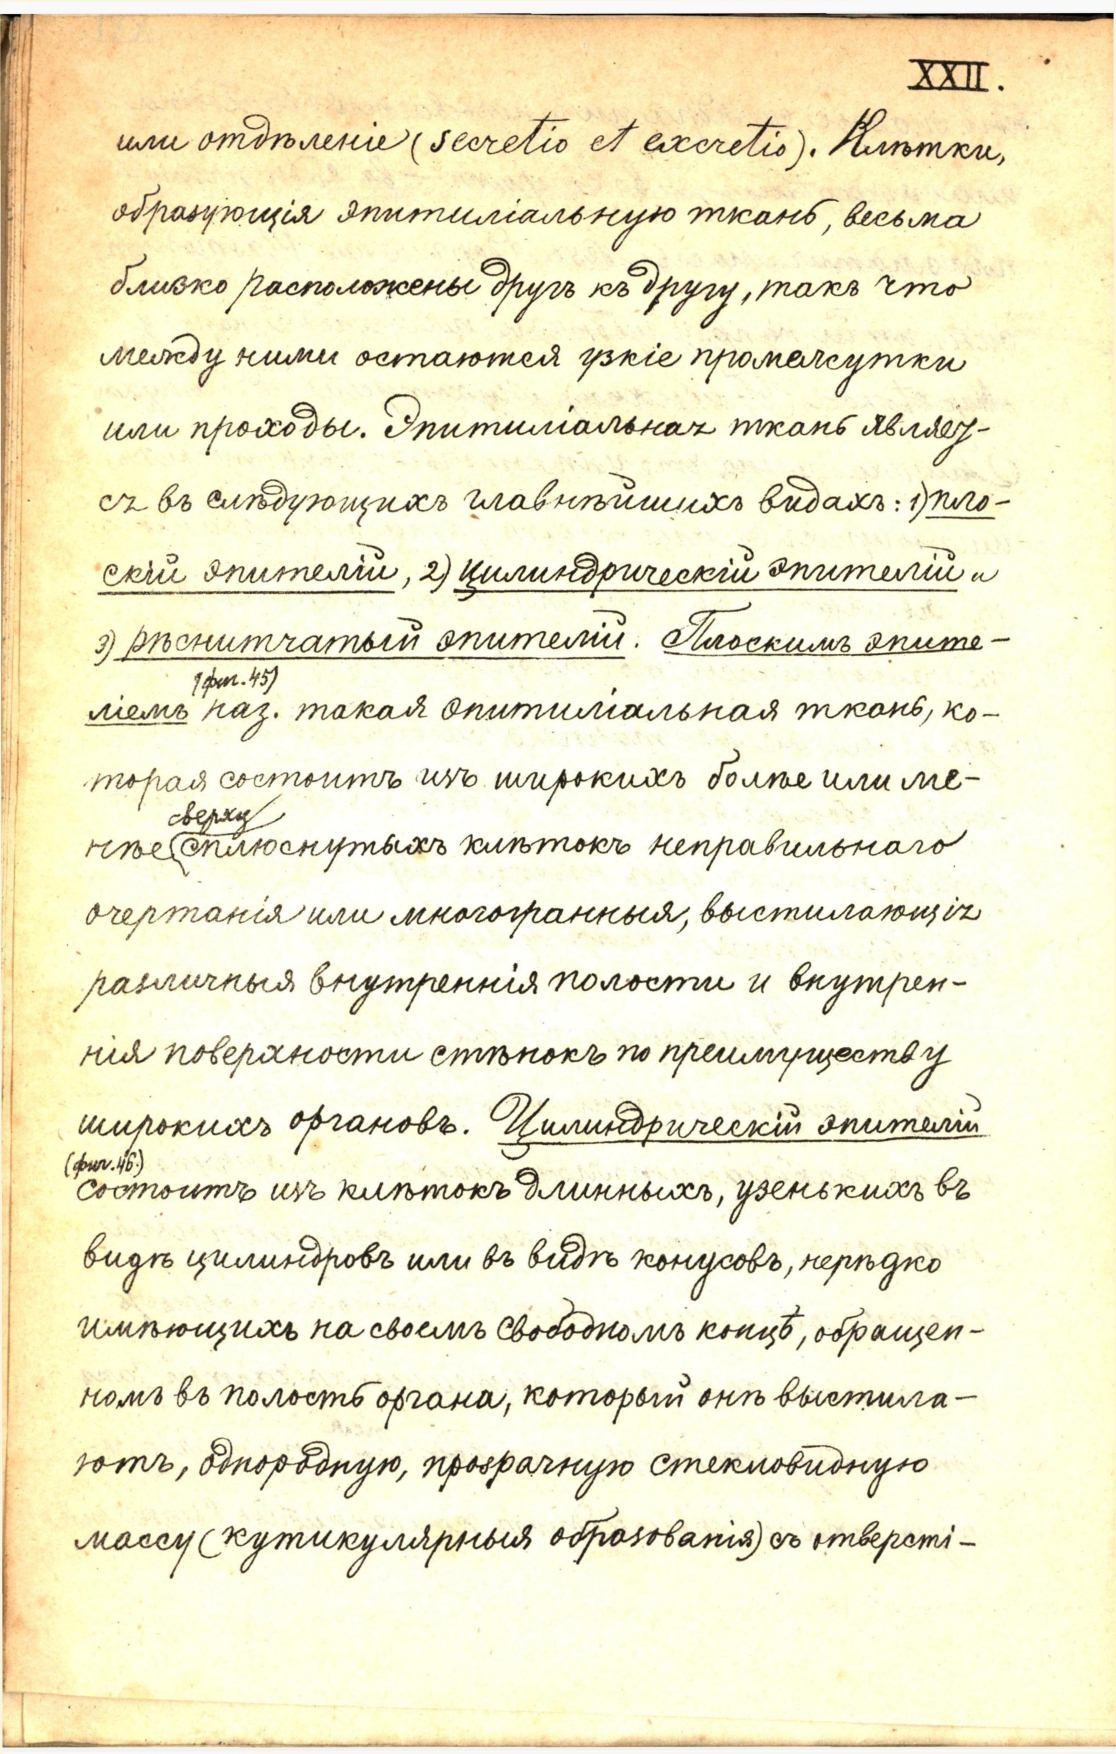 XXII.
или отдѣленіе (secretio et excretio). Клѣтки,
образующія эпитиліальную ткань, весьма
близко расположены другъ къ другу, такъ что
между ними остаются узкіе промежутки
или проходы. Эпитиліальная ткань являет-
ся въ слѣдующихъ главнѣйшихъ видахъ: 1) пло-
скій эпителій, 2) цилиндрическій эпителій и
3) рѣснитчатый эпителій. Плоскимъ эпите-
(фиг. 45)
ліемъ наз. такая эпитиліальная ткань, ко-
торая состоитъ изъ широкихъ болѣе или ме-
сверху
нѣе сплюснутыхъ клѣтокъ неправильнаго
очертанія или многогранныя, выстилающія
различныя внутреннія полости и внутрен-
нія поверхности стѣнокъ по преимуществу
широкихъ органовъ. Цилиндрическій эпителій
(фиг. 46.)
состоитъ изъ клѣтокъ длинныхъ, узенькихъ въ
видѣ цилиндровъ или въ видѣ конусовъ, нерѣдко
имѣющихъ на своемъ свободномъ концѣ, обращен-
номъ въ полость органа, который онѣ выстила-
ютъ, однородную, прозрачную стекловидную
массу (кутикулярныя образованія) съ отверсті-